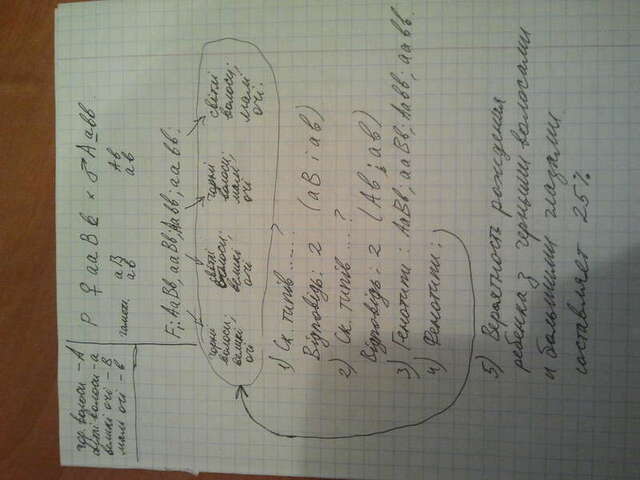 чор. волосся - А
світлі волоси - а
великі очі - В
малі очі - в
Р ♀ ааВв × ♂ Аавв.
гамети: аВ Ав
ав ав
F₁: АаВв, ааВв, Аавв; аавв.
чорні волосся; великі очі
світлі волосся; великі очі
чорні волосся; малі очі
світлі волосся; малі очі.
1) Ск. типів .....?
Відповідь: 2 (аВ і ав)
2) Ск. типів ....?
Відповідь: 2 (Ав і ав)
3) Генотипи: АаВв; ааВв; Аавв; аавв.
4) Фенотипи:
5) Вероятность рождения
ребенка з черными волосами
и большими глазами
составляет 25%